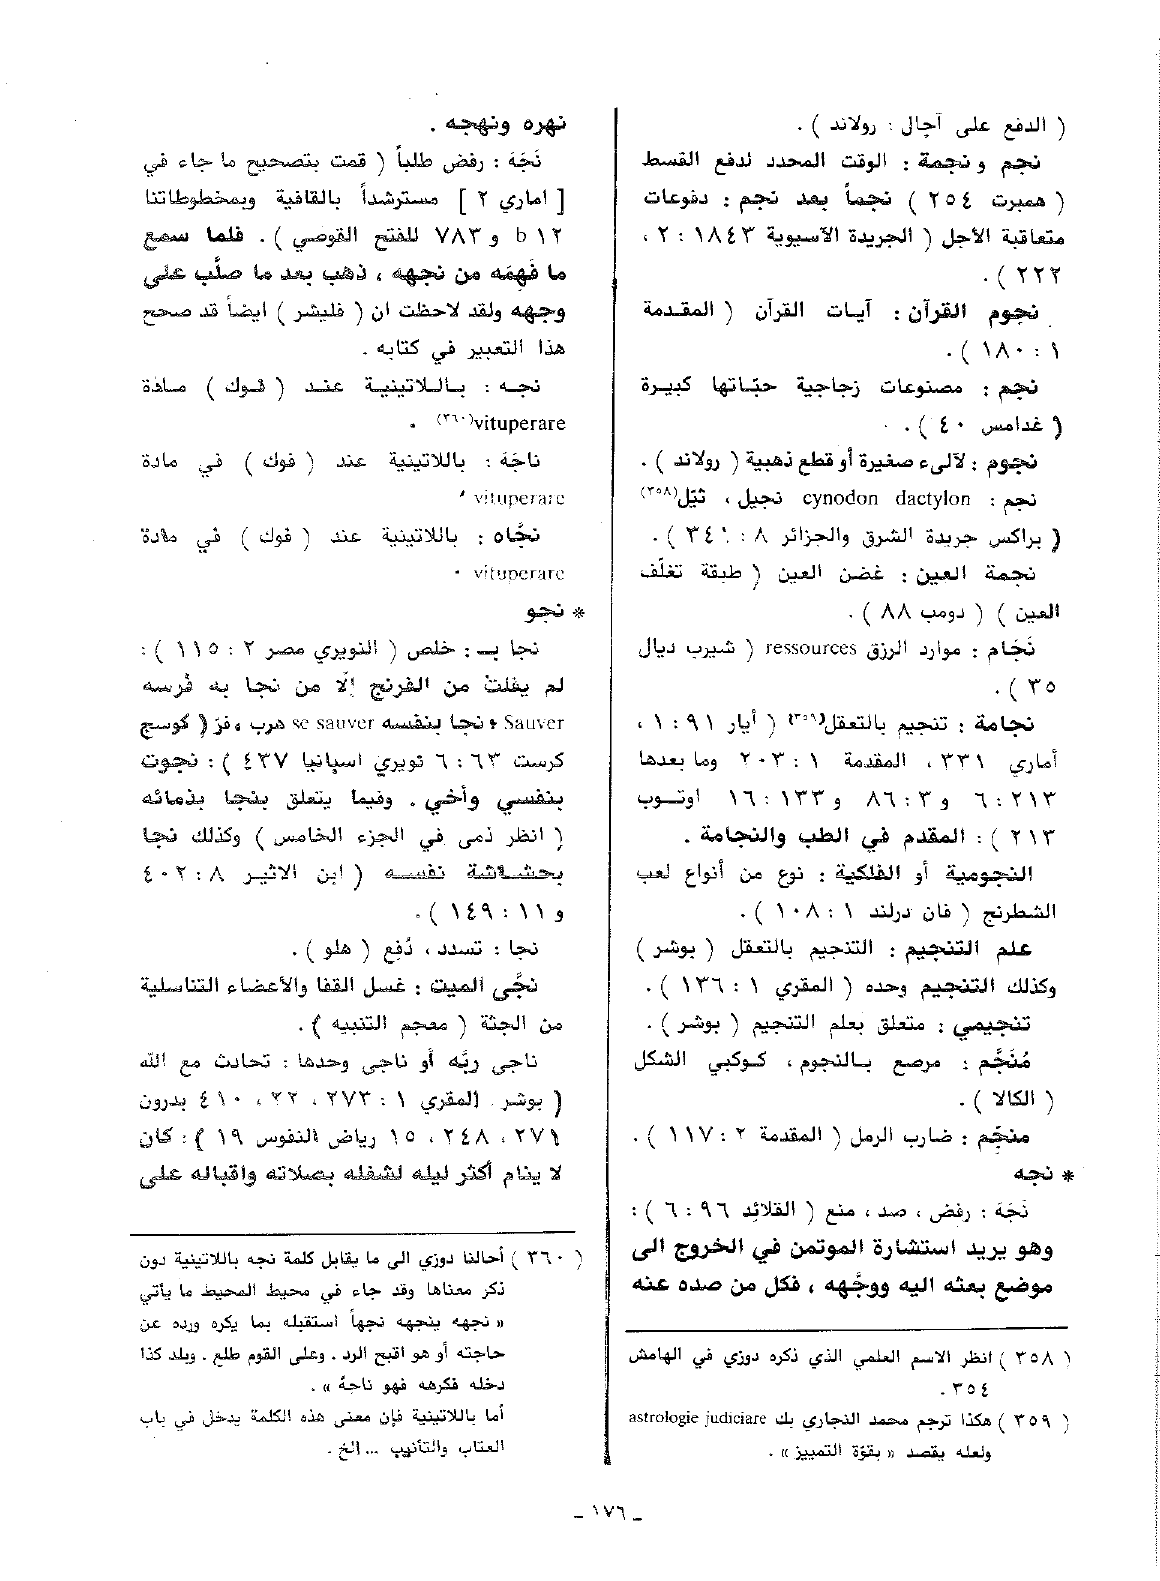 ( الدفع على آجال : رولاند ) .
نجم ونجمة : الوقت المحدد لدفع القسط
( همبرت ٢٥٤ ) نجماً بعد نجم : دفوعات
متعاقبة الأجل ( الجريدة الآسيوية ١٨٤٣ : ٢ ،
٢٢٢ ) .
نجوم القرآن : آيات القرآن ( المقدمة
١ : ١٨٠ ) .
نجم : مصنوعات زجاجية حبّاتها كبيرة
( غدامس ٤٠ ) .
نجوم : لآلىء صغيرة أو قطع ذهبية ( رولاند ) .
نجم : cynodon dactylon نجيل ، ثيّل(٣٥٨)
( براكس جريدة الشرق والجزائر ٨ : ٣٤١ ) .
نجمة العين : غضن العين ( طبقة تغلّف
العين ) ( دومب ٨٨ ) .
نَجَام : موارد الرزق ressources ( شيرب ديال
٣٥ ) .
نجامة : تنجيم بالتعقل(٣٥٩) ( أبار ٩١ : ١ ،
أماري ٣٣١ ، المقدمة ١ : ٢٠٣ وما بعدها
٢١٣ : ٦ و ٣ : ٨٦ و ١٣٣ : ١٦ اوتوب
٢١٣ ) : المقدم في الطب والنجامة .
النجومية أو الفلكية : نوع من أنواع لعب
الشطرنج ( فان درلند ١ : ١٠٨ ) .
علم التنجيم : التنجيم بالتعقل ( بوشر )
وكذلك التنجيم وحده ( المقري ١ : ١٣٦ ) .
تنجيمي : متعلق بعلم التنجيم ( بوشر ) .
مُنَجَّم : مرصع بالنجوم ، كوكبي الشكل
( الكالا ) .
منجّم : ضارب الرمل ( المقدمة ٢ : ١١٧ ) .
* نجه
نَجَهَ : رفض ، صد ، منع ( القلائد ٩٦ : ٦ ) :
وهو يريد استشارة الموتمن في الخروج الى
موضع بعثه اليه ووجّهه ، فكل من صده عنه
( ٣٥٨ ) انظر الاسم العلمي الذي ذكره دوزي في الهامش
٣٥٤ .
( ٣٥٩ ) هكذا ترجم محمد النجاري بك astrologie judiciare
ولعله يقصد « بقوّة التمييز » .
نهره ونهجه .
نَجَهَ : رفض طلباً ( قمت بتصحيح ما جاء في
[ اماري ٢ ] مسترشداً بالقافية وبمخطوطاتنا
١٢ b و ٧٨٣ للفتح القوضي ) . فلما سمع
ما فَهِمَه من نجهه ، ذهب بعد ما صلّب على
وجهه ولقد لاحظت ان ( فليشر ) ايضاً قد صحح
هذا التعبير في كتابه .
نجه : باللاتينية عند ( فوك ) مادة
vituperare(٣٦٠) .
ناجَهَ : باللاتينية عند ( فوك ) في مادة
vituperare .
نجّاه : باللاتينية عند ( فوك ) في مادة
vituperare .
* نجو
نجا بـ : خلص ( النويري مصر ٢ : ١١٥ ) :
لم يفلت من الفرنج إلّا من نجا به فرسه
Sauver + نجا بنفسه se sauver هرب ، فرّ ( كوسج
كرست ٦٣ : ٦ نويري اسپانيا ٤٣٧ ) : نجوت
بنفسي وأخي . وفيما يتعلق بنجا بذمائه
( انظر ذمى في الجزء الخامس ) وكذلك نجا
بحشاشة نفسه ( ابن الاثير ٨ : ٤٠٢
و ١١ : ١٤٩ ) .
نجا : تسدد ، دُفِع ( هلو ) .
نجّى الميت : غسل القفا والأعضاء التناسلية
من الجثة ( معجم التنبيه ) .
ناجى ربّه أو ناجى وحدها : تحادث مع الله
( بوشر . المقري ١ : ٢٧٣ ، ٢٢ ، ٤١٠ بدرون
٢٧١ ، ٢٤٨ ، ١٥ رياض النفوس ١٩ ) : كان
لا ينام أكثر ليله لشغله بصلاته واقباله على
( ٣٦٠ ) أحالنا دوزي الى ما يقابل كلمة نجه باللاتينية دون
ذكر معناها وقد جاء في محيط المحيط ما يأتي
« نجهه ينجهه نجهاً استقبله بما يكره ورده عن
حاجته أو هو اقبح الرد . وعلى القوم طلع . وبلد كذا
دخله فكرهه فهو ناجهٌ » .
أما باللاتينية فإن معنى هذه الكلمة يدخل في باب
العتاب والتأنيب ... الخ .
ـ ١٧٦ ـ